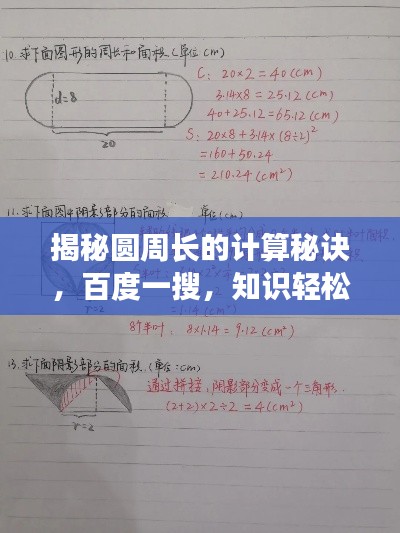 10.求下面图形的周长和面积.(单位cm)
C: 20×2=40(cm)
3.14×8=25.12(cm)
40+25.12=65.12(cm)
S: 20×8+3.14×(8÷2)²
=160+50.24
=210.24(cm²)
d=8
20
11.求下面图中阴影部分的面积. 单位(cm)
揭秘圆周长的计算秘诀
，百度一搜，知识轻松
8个半叶: 8×1.14=9.12(cm²)
13.求下面阴影部分的面积.(单位:cm)
通过拼接,阴影部分变成一个三角形.
(2+2)×2÷2=4(cm²)
r=2
r=2